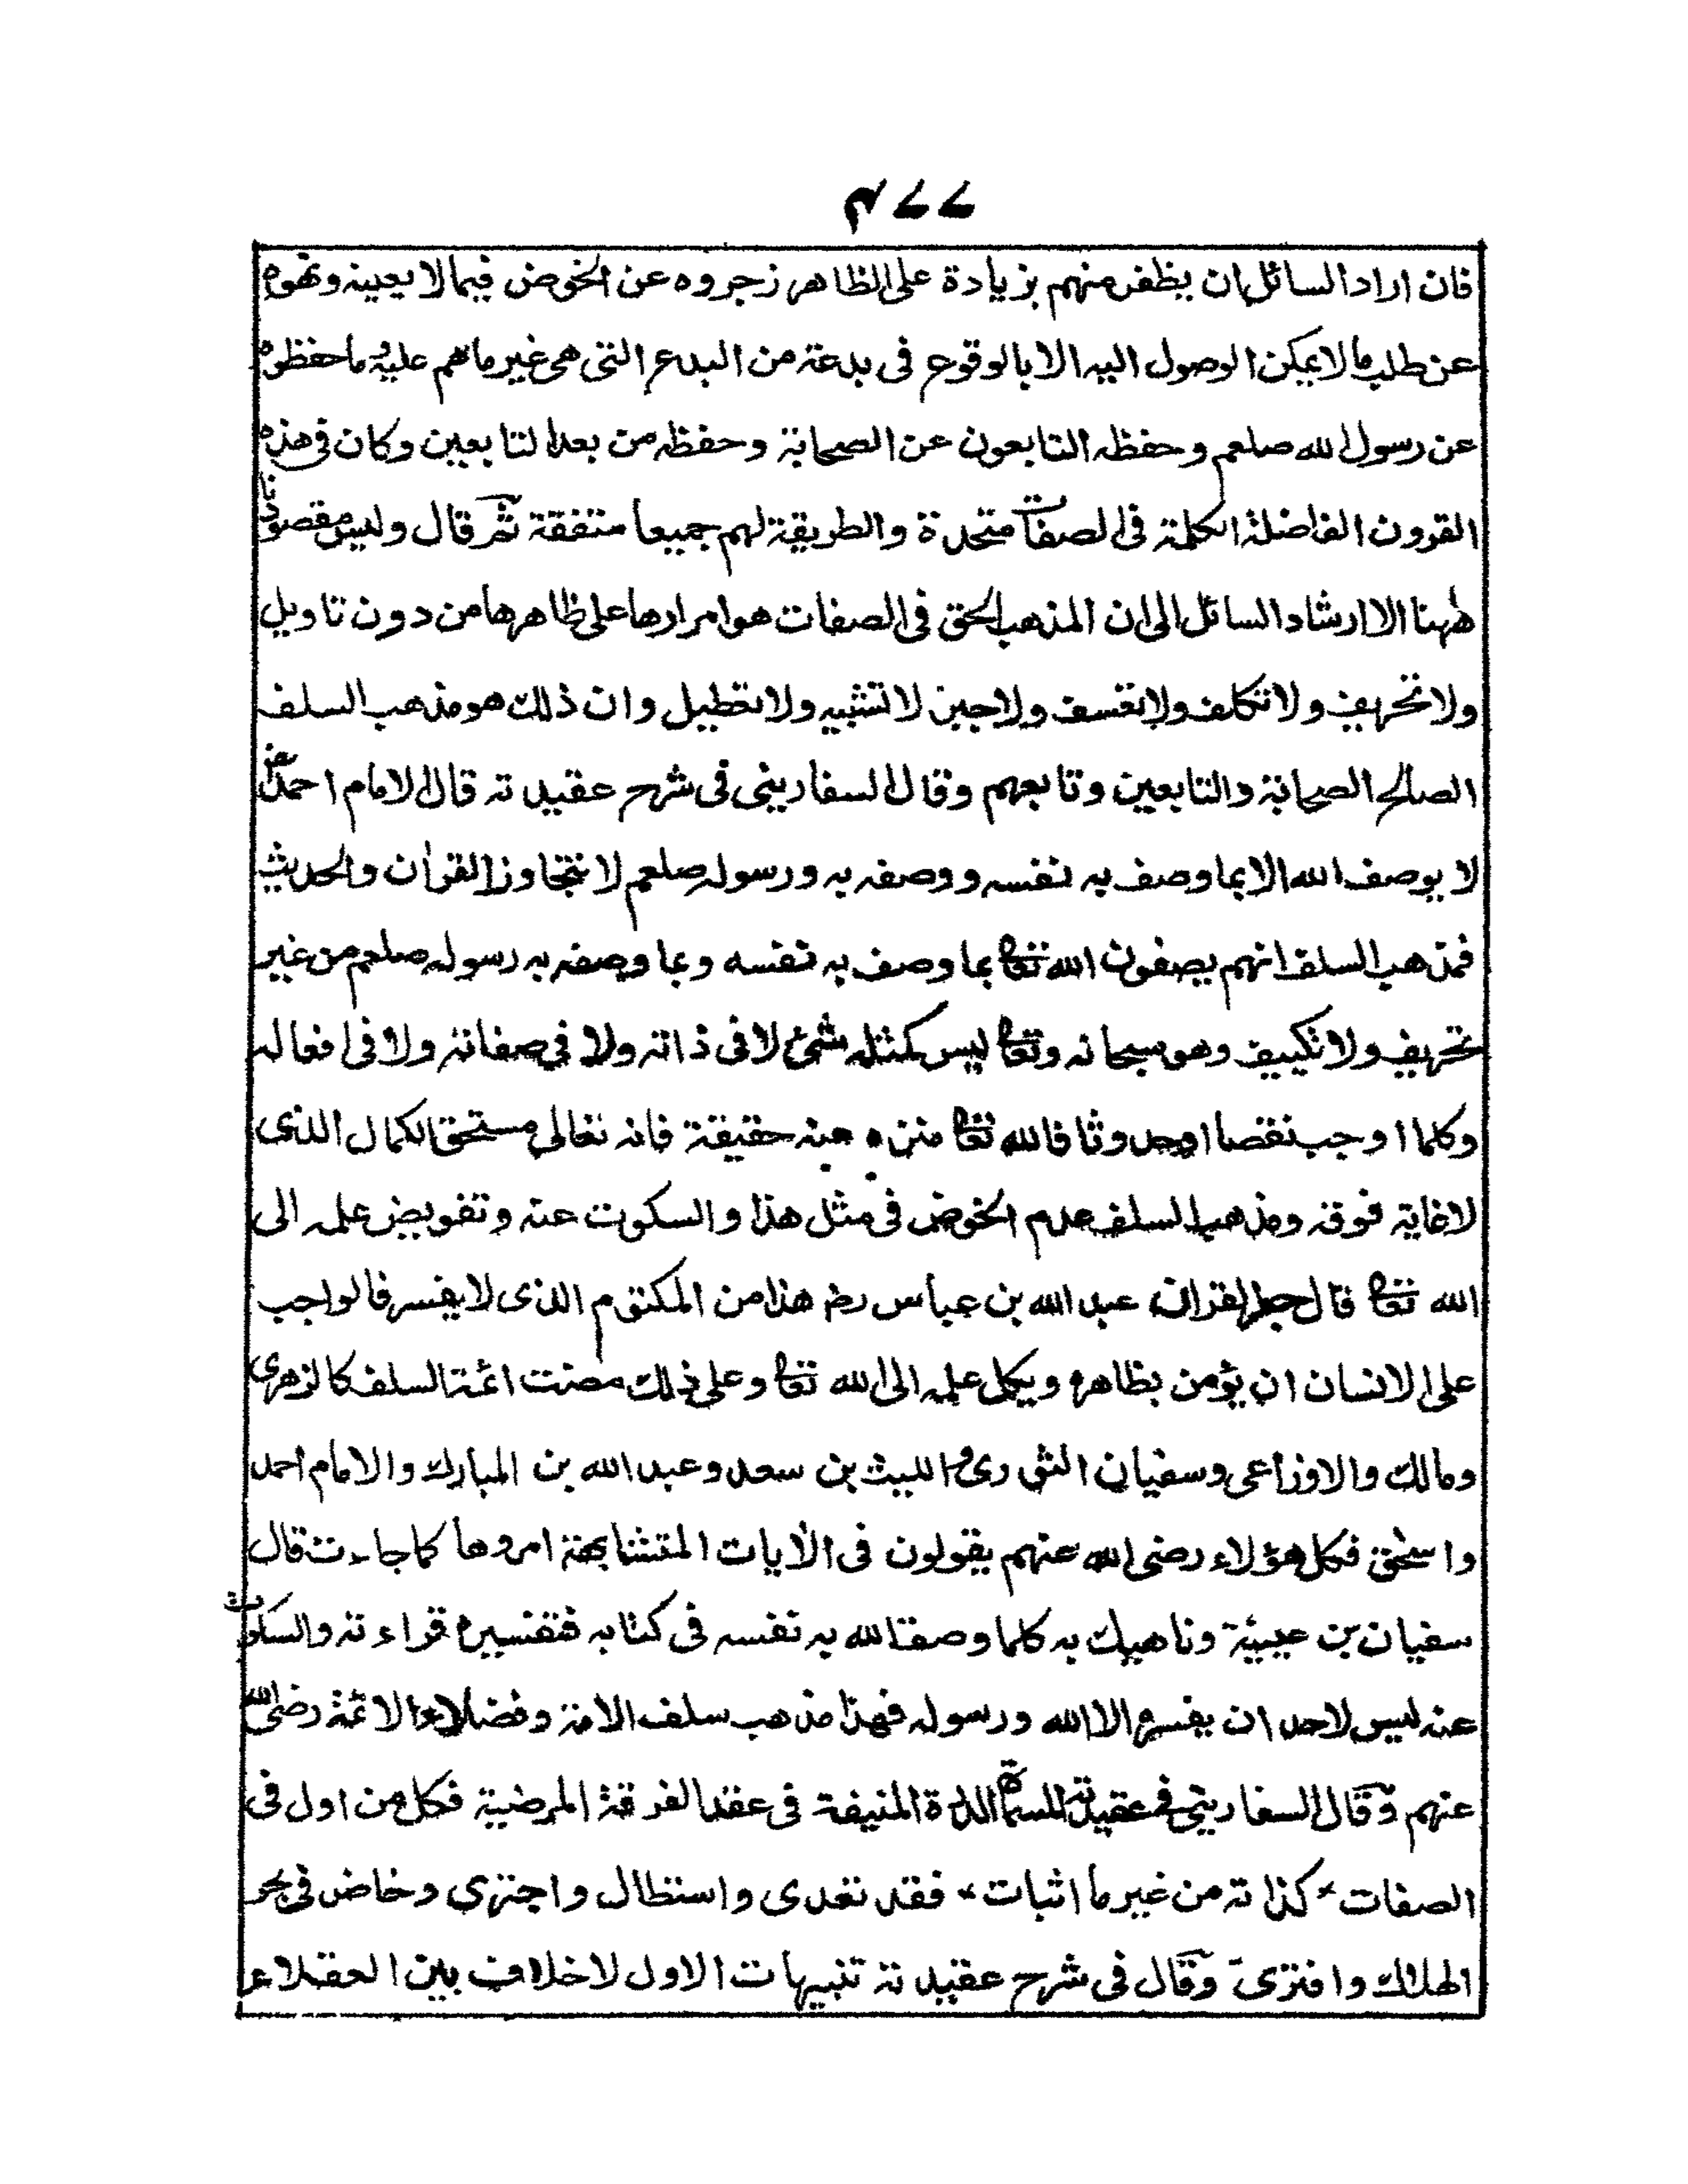 ۴۷۷
فان اراد السائل ان يظفر منهم بزيادة على الظاهر زجروه عن الخوض فيما لا يعينه ونهوه
عن طلب ما لا يمكن الوصول اليه الا بالوقوع فى بدعة من البدع التى هى غير ما هم عليه وما حفظوه
عن رسول الله صلعم وحفظه التابعون عن الصحابة وحفظه من بعد التابعين وكان فى هذه
القرون الفاضلة الكلمة فى الصفات متحدة والطريقة لهم جميعا متفقة ثم قال وليس مقصودنا
ههنا الا ارشاد السائل الى ان المذهب الحق فى الصفات هو امرارها على ظاهرها من دون تاويل
ولا تحريف ولا تكلف ولا تعسف ولا جبن لا تشبيه ولا تعطيل وان ذلك هو مذهب السلف
الصالح الصحابة والتابعين وتابعهم وقال السفارينى فى شرح عقيدته قال الامام احمد رض
لا يوصف الله الا بما وصف به نفسه ووصفه به ورسوله صلعم لا نتجاوز القران والحديث
فمذهب السلف انهم يصفون الله تعا بما وصف به نفسه وبما وصفه به رسوله صلعم من غير
تحريف ولا تكييف وهو سبحانه وتعا ليس كمثله شئ لا فى ذاته ولا فى صفاته ولا فى افعاله
وكلما اوجب نقصا او حدوثا فالله تعا منزه عنه حقيقة فانه تعالى مستحق الكمال الذى
لا غاية فوقه ومذهب السلف عدم الخوض فى مثل هذا والسكوت عنه وتفويض علمه الى
الله تعا قال حبر القران عبد الله بن عباس رض هذا من المكتوم الذى لا يفسر فالواجب
على الانسان ان يؤمن بظاهره ويكل علمه الى الله تعا وعلى ذلك مضت ائمة السلف كالزهرى
ومالك والاوزاعى وسفيان الثورى والليث بن سعد وعبد الله بن المبارك والامام احمد
واسحق فكل هؤلاء رضى الله عنهم يقولون فى الأيات المتشابهة امروها كما جاءت قال
سفيان بن عيينة وناهيك به كلما وصف الله به نفسه فى كتابه فتفسيره قراءته والسكوت
عنه ليس لاحد ان يفسره الا الله ورسوله فهذا مذهب سلف الامة وفضلاء الائمة رضى الله
عنهم وقال السفارينى فى عقيدته المسماة الدرة المنيفة فى عقد الفرقة المرضية فكل من اول فى
الصفات * كذاته من غير ما اثبات * فقد تعدى واستطال واجترى وخاض فى بحر
الهلاك وافترى وقال فى شرح عقيدته تنبيهات الاول لا خلاف بين العقلاء